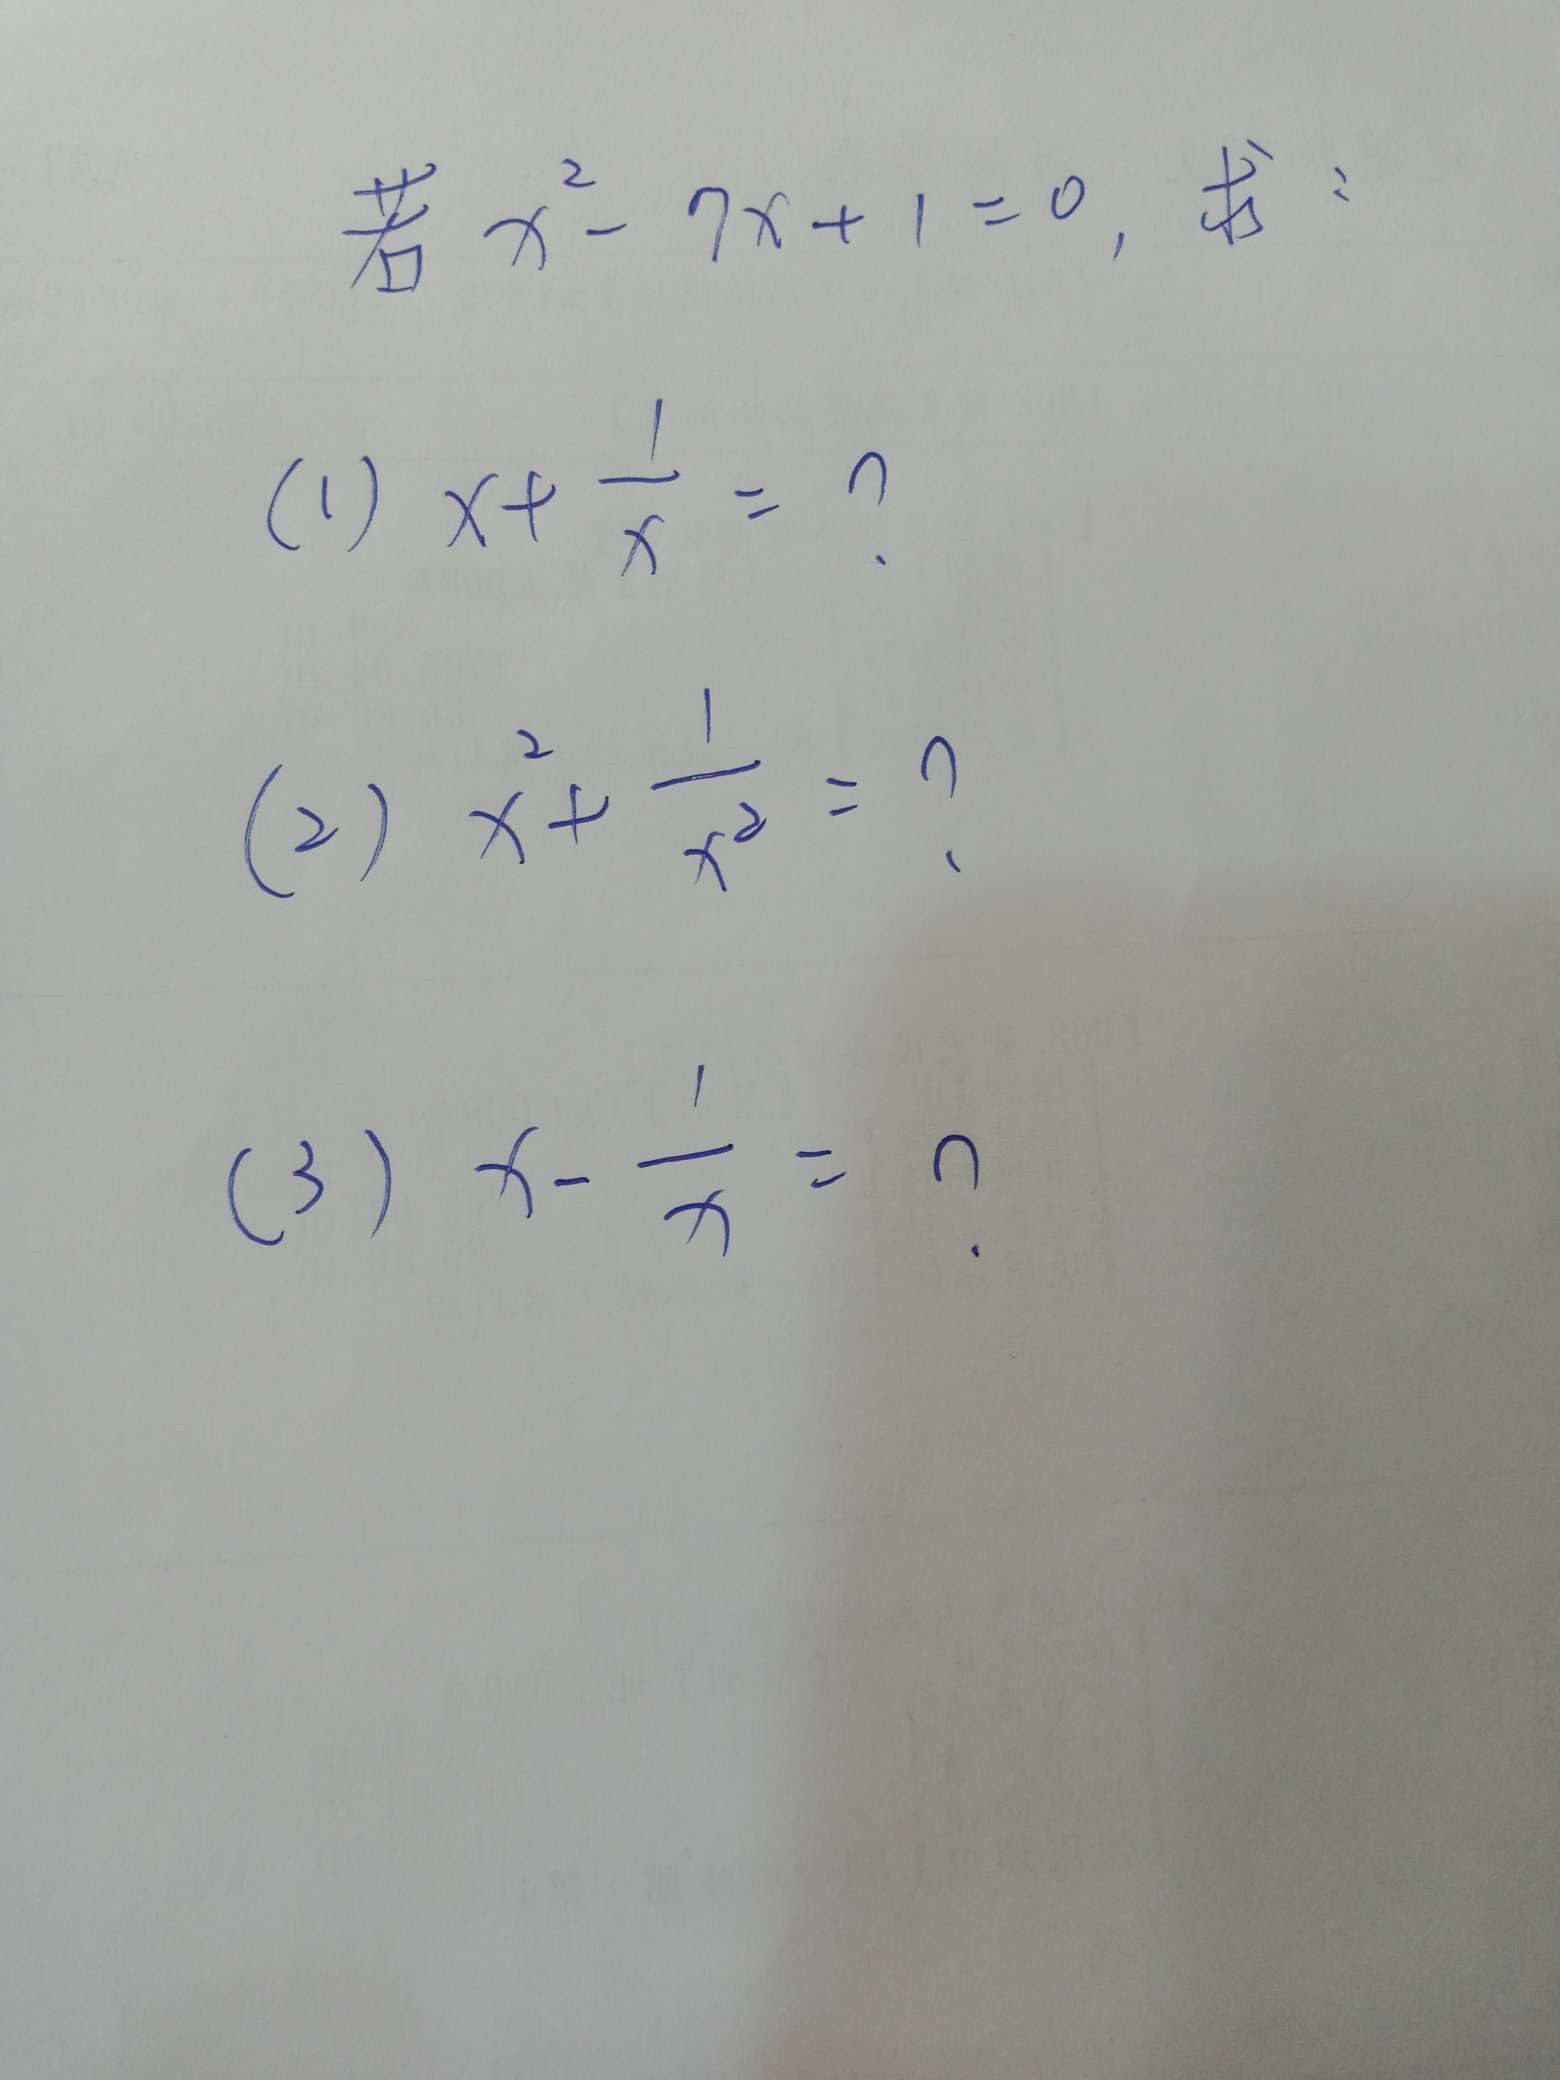 若 x² - 7x + 1 = 0, 求:
(1) x + 1/x = ?
(2) x² + 1/x² = ?
(3) x - 1/x = ?